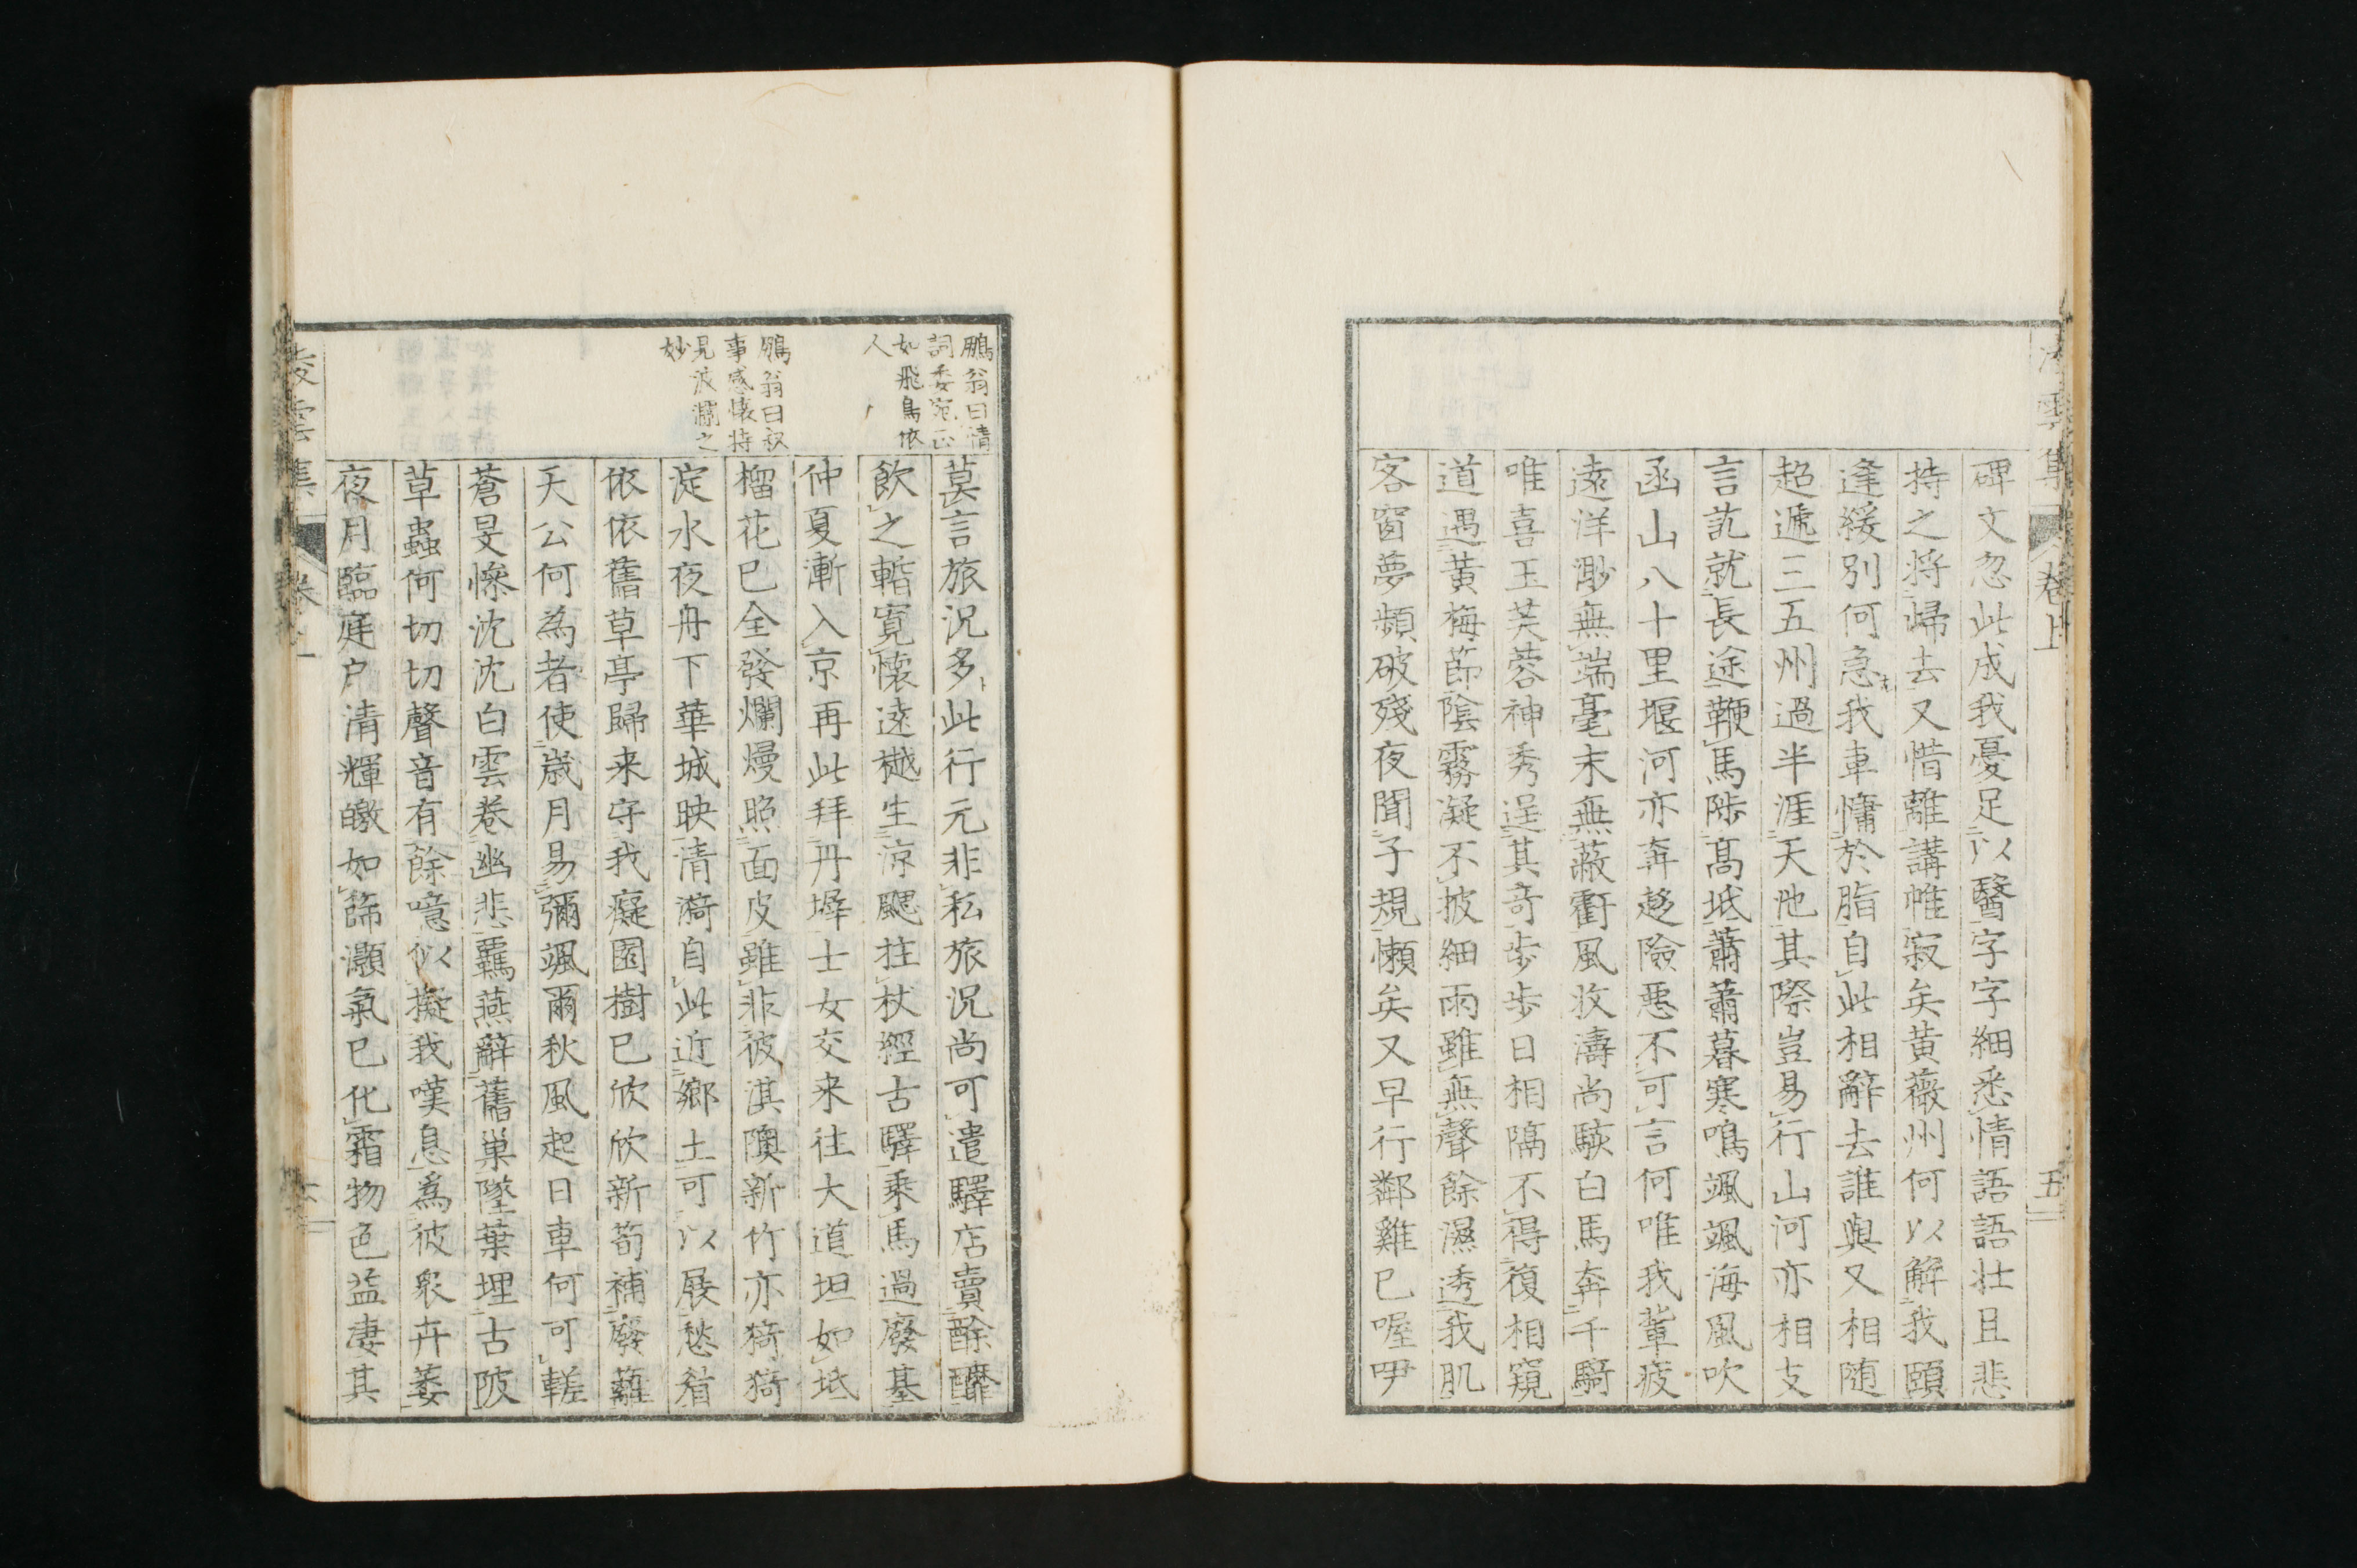 碑文忽此成我憂足以醫字字細悉情語語壮且悲
持之将歸去又惜離講帷寂矣黄薇州何以解我頤
逢緩別何急我車慵於脂自此相辭去誰與又相随
超遞三五州過半涯天池其際豈易行山河亦相支
言訖就長途鞭馬陟高坻蕭蕭暮寒鳴颯颯海風吹
函山八十里堰河亦奔趍險悪不可言何唯我輩疲
遠洋渺無端毫末無蔽虧風收濤尚駭白馬奔千騎
唯喜玉芙蓉神秀逞其奇歩歩日相隔不得復相窺
道遇黄梅節陰霧凝不披細雨雖無聲餘濕透我肌
客窗夢頻破殘夜聞子規懶矣又早行鄰雞已喔咿
五
鵬翁曰情
詞委宛
如飛鳥依
人
鵬翁曰叙
事感懐持
見波瀾之
妙
莫言旅況多此行元非私旅況尚可遣驛店賣酴醾
飲之輜寛懐遠樾生涼颸拄杖經古驛乘馬過廢基
仲夏漸入京再此拜丹墀士女交来往大道坦如坻
榴花已全發爛熳照面皮雖非彼淇隩新竹亦猗猗
淀水夜舟下華城映清漪自此近郷土可以展愁眉
依依舊草亭歸来守我癡園樹已欣欣新荀補廢蘺
天公何為者使歳月易彌颯爾秋風起日車何可輕
蒼旻惨沈沈白雲巻幽悲羈燕辭舊巣墜葉埋古陂
草蟲何切切聲音有餘噫似擬我嘆息爲彼衆卉萎
夜月臨庭戸清輝皦如篩灝氣已化霜物色益凄其
凌雲集